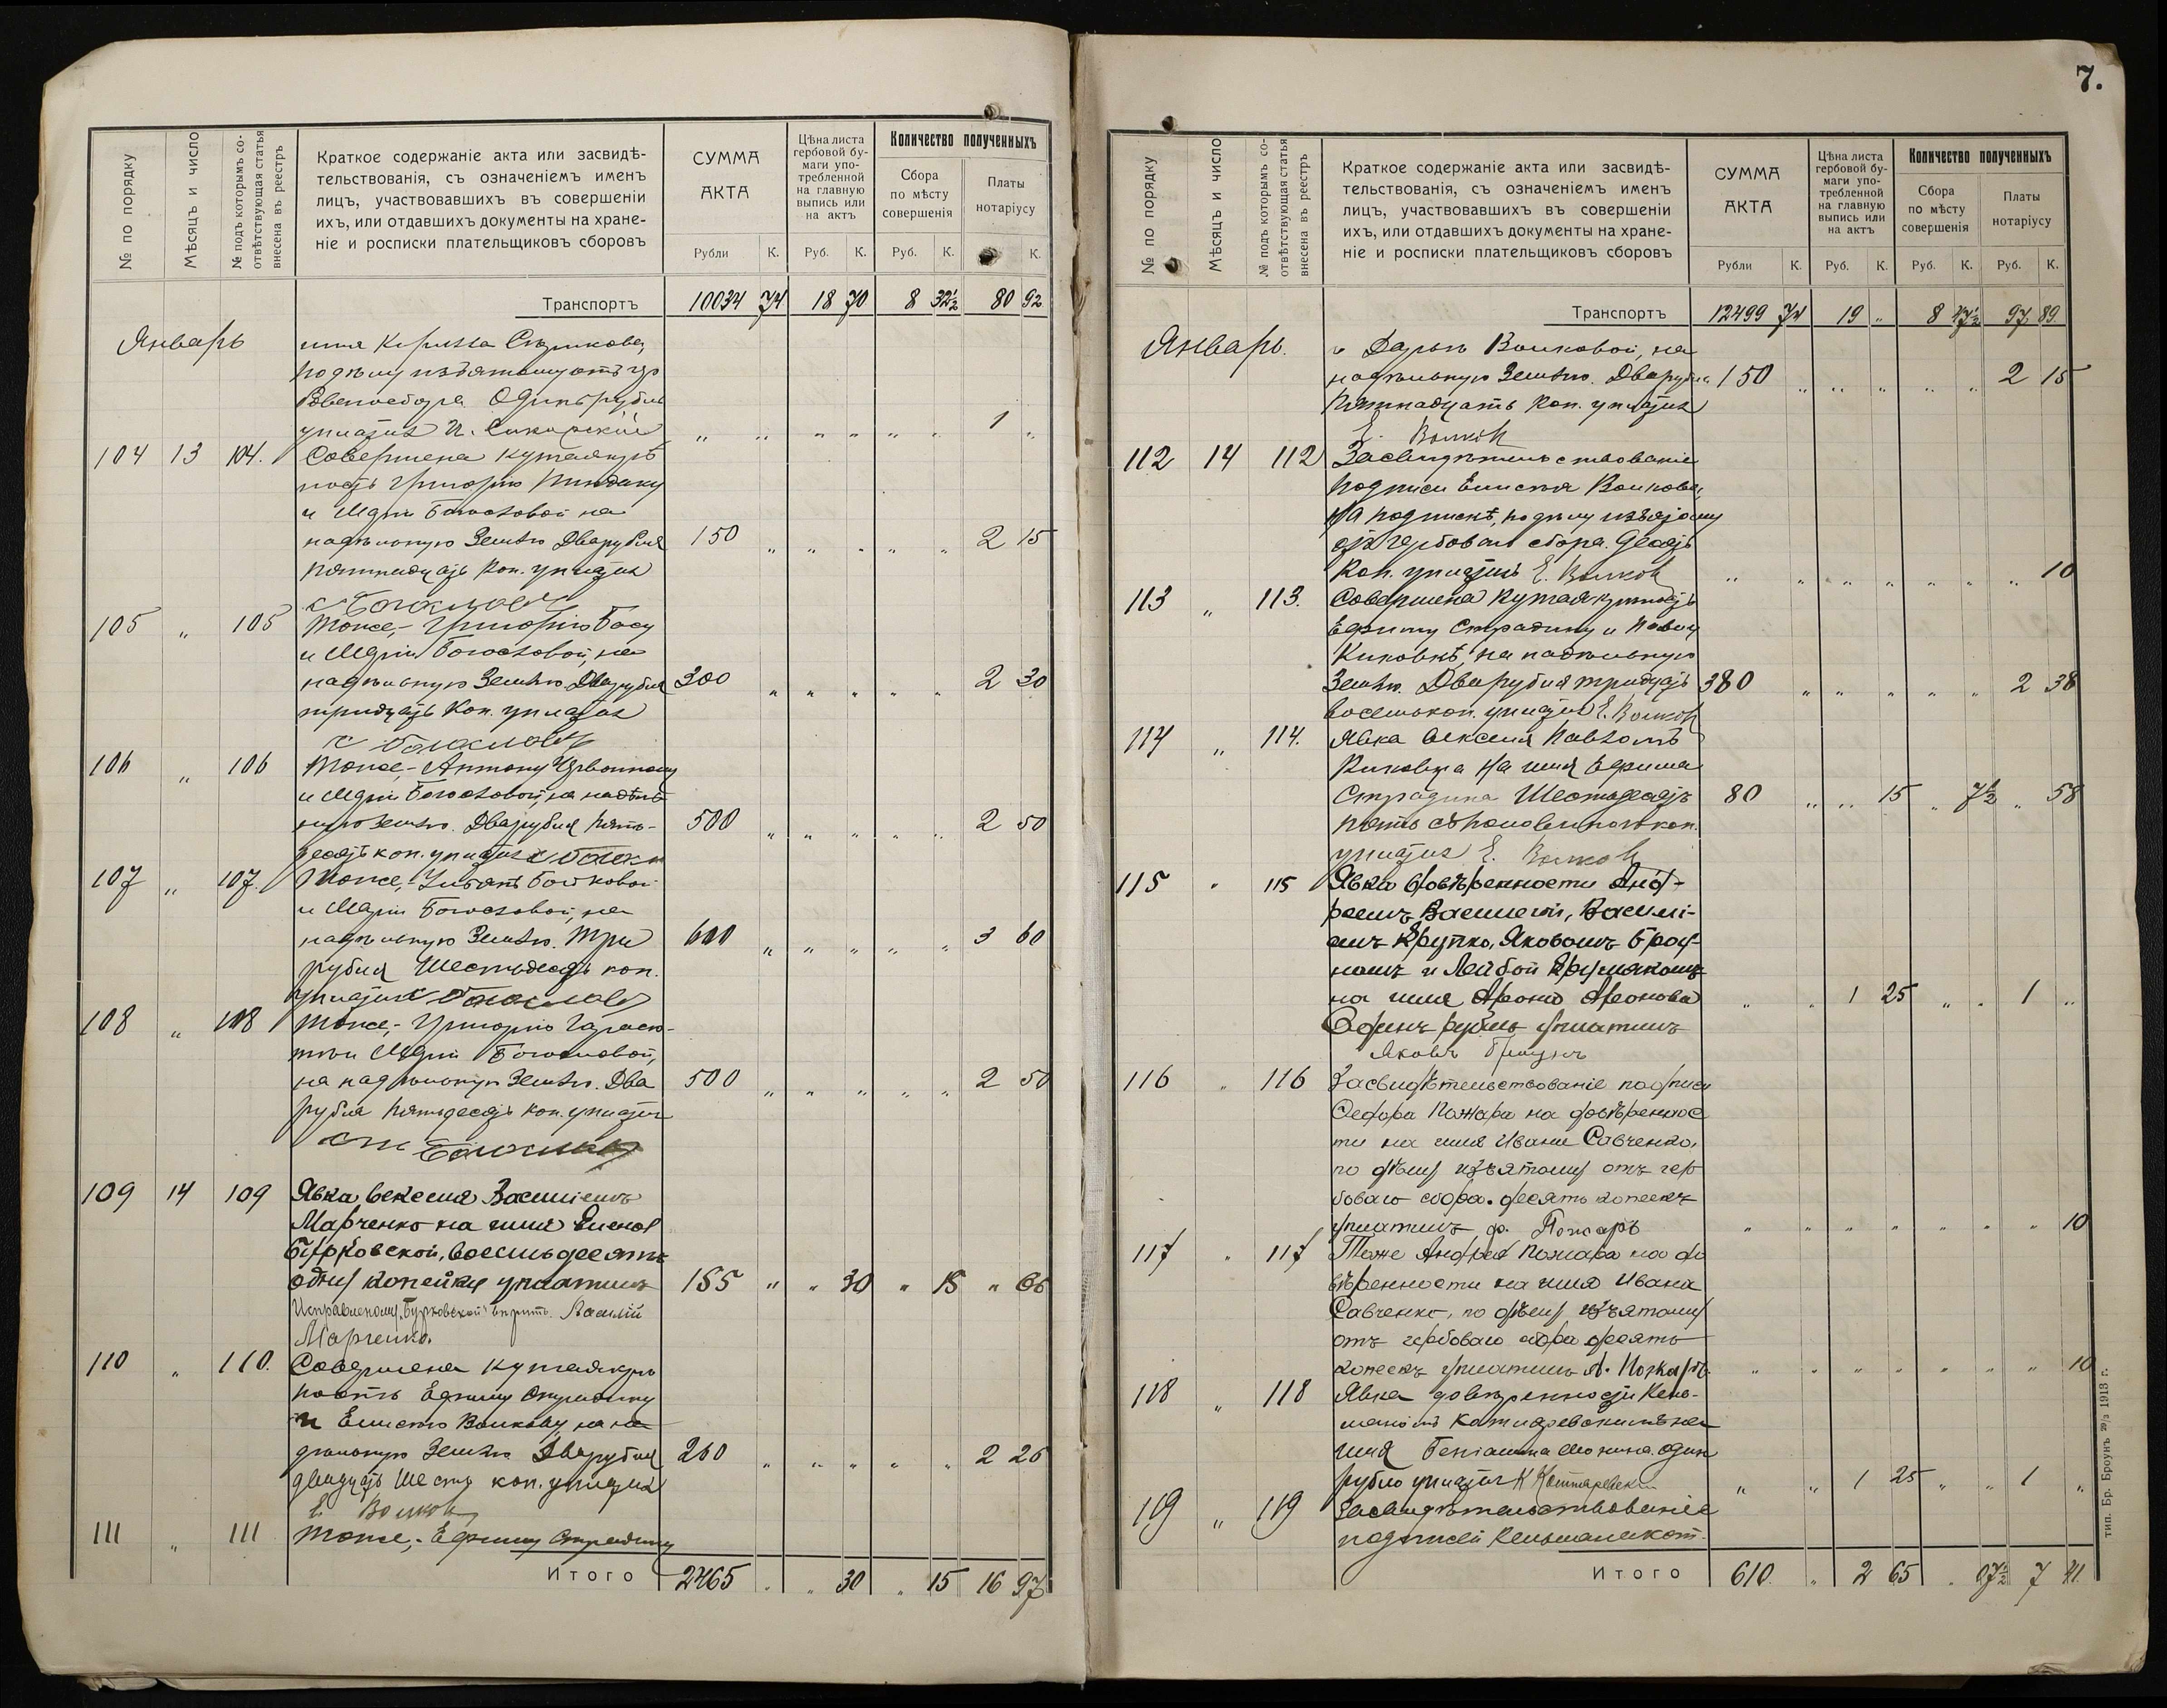 № по порядку
Мѣсяцъ и число
№ подъ которымъ со-
отвѣтствующая статья
внесена въ реестръ
Краткое содержаніе акта или засвидѣ-
тельствованія, съ означеніемъ именъ
лицъ, участвовавшихъ въ совершеніи
ихъ, или отдавшихъ документы на хране-
ніе и росписки плательщиковъ сборовъ
СУММА
АКТА
Рубли К.
Цѣна листа
гербовой бу-
маги упо-
требленной
на главную
выпись или
на актъ
Руб. К.
Количество полученныхъ
Сбора
по мѣсту
совершенія
Руб. К.
Платы
нотаріусу
К.
Транспортъ 10034 74 18 70 8 32½ 80 92
Январь имя Кирилла
Одинъ рубль
" " " " " " 1 "
104 13 104. Совершена купчая крѣ
пость Григорію
и Маріи Богословой на
надѣльную землю Два рубля 150 " " " " " 2 15
пятнадцать коп. уплатил
105 " 105 Тоже,- Григорію Басу
и Маріи Богословой, на
надѣльную землю. Два рубля 300 " " " " " 2 30
тридцать коп. уплатил
106 " 106 Тоже,- Антону
и Маріи Богословой, на надѣль
ную землю. Два рубля пять- 500 " " " " " 2 50
десятъ коп. уплатил
107 " 107. Тоже,-
и Маріи Богословой, на
надѣльную землю. Три 600 " " " " " 3 60
рубля шестьдесятъ коп.
уплатил
108 " 108 Тоже,- Григорію
Маріи Богословой,
на надѣльную землю. Два 500 " " " " " 2 50
рубля пятьдесятъ коп. уплатил
109 14 109 Явка векселя Василіемъ
Марченко на имя Елены
Бурковской, восемьдесятъ
одну копейку уплатилъ 155 " " 30 " 15 " 66
Исправленному "Бурковской" вѣрить. Василій
Марченко.
110 " 110. Совершена купчая крѣ
пость Ефиму Страдину
и Елисѣю Волкову, на на
дѣльную землю Два рубля 260 " " " " " 2 26
двадцать шесть коп. уплатил
Е. Волков
111 " 111 Тоже,- Ефиму Страдину
Итого 2465 " " 30 " 15 16 97
7.
№ по порядку
Мѣсяцъ и число
№ подъ которымъ со-
отвѣтствующая статья
внесена въ реестръ
Краткое содержаніе акта или засвидѣ-
тельствованія, съ означеніемъ именъ
лицъ, участвовавшихъ въ совершеніи
ихъ, или отдавшихъ документы на хране-
ніе и росписки плательщиковъ сборовъ
СУММА
АКТА
Рубли К.
Цѣна листа
гербовой бу-
маги упо-
требленной
на главную
выпись или
на актъ
Руб. К.
Количество полученныхъ
Сбора
по мѣсту
совершенія
Руб. К.
Платы
нотаріусу
Руб. К.
Транспортъ 12499 74 19 " 8 47½ 97 89
Январь. и Дарьѣ Волковой, на
надѣльную землю. Два рубля 150 " " " " " 2 15
пятнадцать коп. уплатил
Е. Волков
112 14 112 Засвидѣтельствованіе
подписи Елисѣя Волкова,
на подпискѣ, по дѣлу изъятому
отъ гербоваго сбора. Десять
коп. уплатилъ Е. Волков " " " " " " " 10
113 " 113. Совершена купчая крѣпость
Ефиму Страдину и Павлу
на надѣльную
землю. Два рубля тридцать 380 " " " " " 2 38
восемь коп. уплатил Е. Волков
114 " 114. Явка векселя Павломъ
на имя Ефима
Страдина Шестьдесятъ 80 " " 15 " 7½ " 58
пять съ половиною коп.
уплатил Е. Волков
115 " 115 Явка довѣренности Анд-
реемъ Василіемъ
Крупко, Яковомъ Броу-
номъ и Лейбой
на имя Арона Аронова " " 1 25 " " 1 "
Одинъ рубль уплатилъ
Яковъ
116 " 116 Засвидѣтельствованіе подписи
Федора Пожара на довѣреннос
ти на имя Ивана Савченко,
по дѣлу изъятому отъ гер
боваго сбора. десять копеекъ
уплатилъ Ф. Пожаръ " " " " " " " 10
117 " 117 Тоже Андрея Пожара на до
вѣренности на имя Ивана
Савченко, по дѣлу изъятому
отъ гербоваго сбора десять
копеекъ уплатилъ А. Пожаръ " " " " " " " 10
118 " 118 Явка довѣренности Кель-
маномъ
имя один
рубль уплатил " " 1 25 " " 1 "
119 " 119 Засвидѣтельствованіе
подписей
Итого 610. " 2 65 " 07½ 7 41.
тип. Бр. Броунъ 29/3 1913 г.